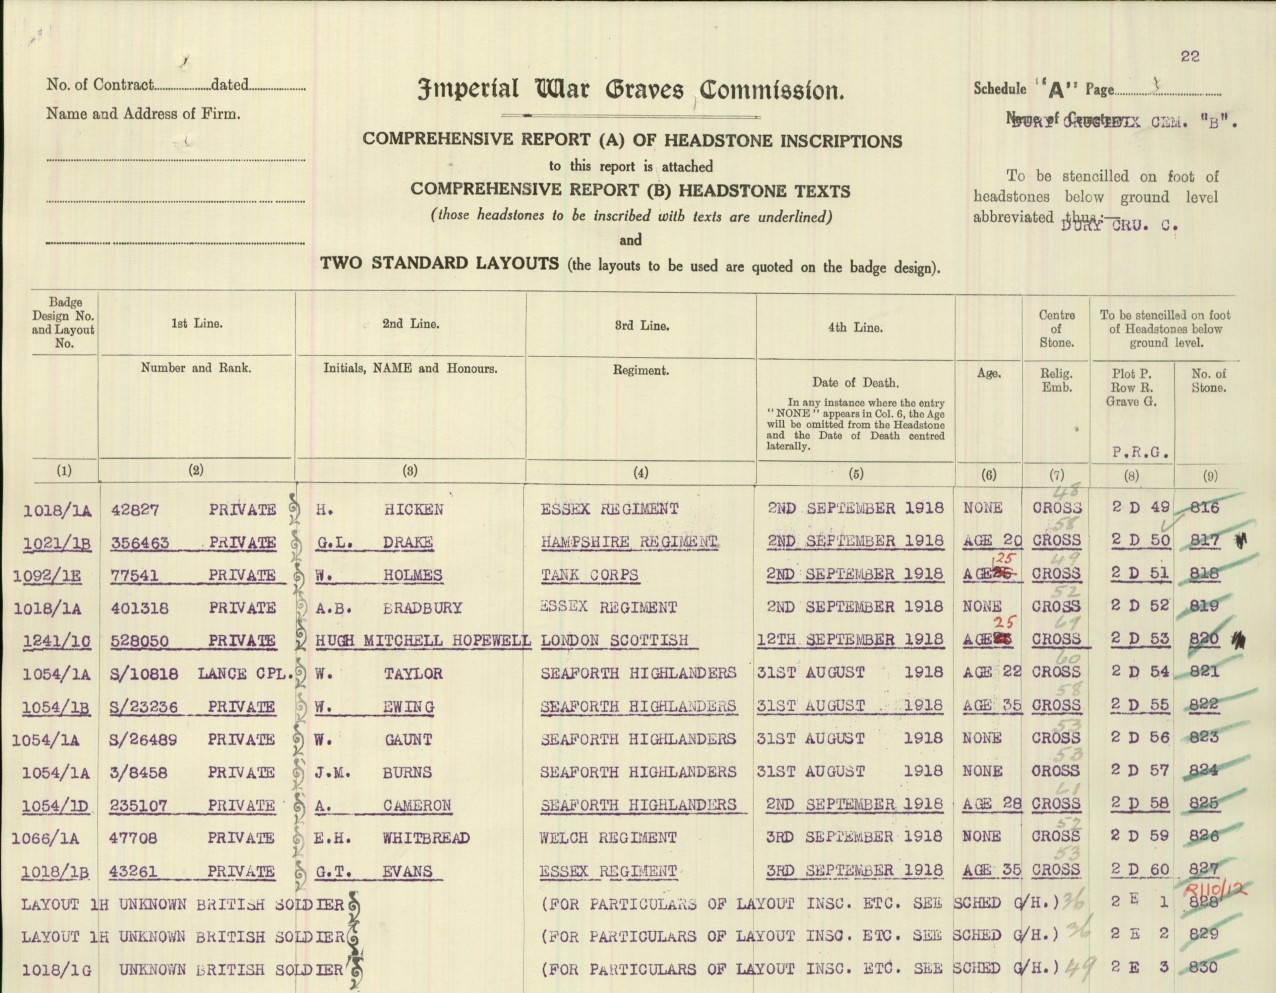 22
No. of Contract dated
Imperial War Graves Commission.
Schedule "A" Page
Name and Address of Firm.
Name of Cemetery
DURY CRUCIFIX CEM. "B".
COMPREHENSIVE REPORT (A) OF HEADSTONE INSCRIPTIONS
to this report is attached
COMPREHENSIVE REPORT (B) HEADSTONE TEXTS
(those headstones to be inscribed with texts are underlined)
and
TWO STANDARD LAYOUTS (the layouts to be used are quoted on the badge design).
To be stencilled on foot of
headstones below ground level
abbreviated thus:—
DURY CRU. C.
Badge Design No. and Layout No.
1st Line.
2nd Line.
3rd Line.
4th Line.
Centre of Stone.
To be stencilled on foot of Headstones below ground level.
Number and Rank.
Initials, NAME and Honours.
Regiment.
Date of Death.
In any instance where the entry "NONE" appears in Col. 6, the Age will be omitted from the Headstone and the Date of Death centred laterally.
Age.
Relig. Emb.
Plot P. Row R. Grave G.
P.R.G.
No. of Stone.
(1) (2) (3) (4) (5) (6) (7) (8) (9)
48
1018/1A 42827 PRIVATE H. HICKEN ESSEX REGIMENT 2ND SEPTEMBER 1918 NONE CROSS 2 D 49 816
58
1021/1B 356463 PRIVATE G.L. DRAKE HAMPSHIRE REGIMENT 2ND SEPTEMBER 1918 AGE 20 CROSS 2 D 50 817
25 49
1092/1E 77541 PRIVATE W. HOLMES TANK CORPS 2ND SEPTEMBER 1918 AGE CROSS 2 D 51 818
52
1018/1A 401318 PRIVATE A.B. BRADBURY ESSEX REGIMENT 2ND SEPTEMBER 1918 NONE CROSS 2 D 52 819
25 69
1241/1C 528050 PRIVATE HUGH MITCHELL HOPEWELL LONDON SCOTTISH 12TH SEPTEMBER 1918 AGE CROSS 2 D 53 820
60
1054/1A S/10818 LANCE CPL. W. TAYLOR SEAFORTH HIGHLANDERS 31ST AUGUST 1918 AGE 22 CROSS 2 D 54 821
58
1054/1B S/23236 PRIVATE W. EWING SEAFORTH HIGHLANDERS 31ST AUGUST 1918 AGE 35 CROSS 2 D 55 822
53
1054/1A S/26489 PRIVATE W. GAUNT SEAFORTH HIGHLANDERS 31ST AUGUST 1918 NONE CROSS 2 D 56 823
53
1054/1A 3/8458 PRIVATE J.M. BURNS SEAFORTH HIGHLANDERS 31ST AUGUST 1918 NONE CROSS 2 D 57 824
61
1054/1D 235107 PRIVATE A. CAMERON SEAFORTH HIGHLANDERS 2ND SEPTEMBER 1918 AGE 28 CROSS 2 D 58 825
52
1066/1A 47708 PRIVATE E.H. WHITBREAD WELCH REGIMENT 3RD SEPTEMBER 1918 NONE CROSS 2 D 59 826
53
1018/1B 43261 PRIVATE G.T. EVANS ESSEX REGIMENT 3RD SEPTEMBER 1918 AGE 35 CROSS 2 D 60 827
R110/12
LAYOUT 1H UNKNOWN BRITISH SOLDIER (FOR PARTICULARS OF LAYOUT INSC. ETC. SEE SCHED G/H.) 36 2 E 1 828
LAYOUT 1H UNKNOWN BRITISH SOLDIER (FOR PARTICULARS OF LAYOUT INSC. ETC. SEE SCHED G/H.) 36 2 E 2 829
1018/1G UNKNOWN BRITISH SOLDIER (FOR PARTICULARS OF LAYOUT INSC. ETC. SEE SCHED G/H.) 49 2 E 3 830